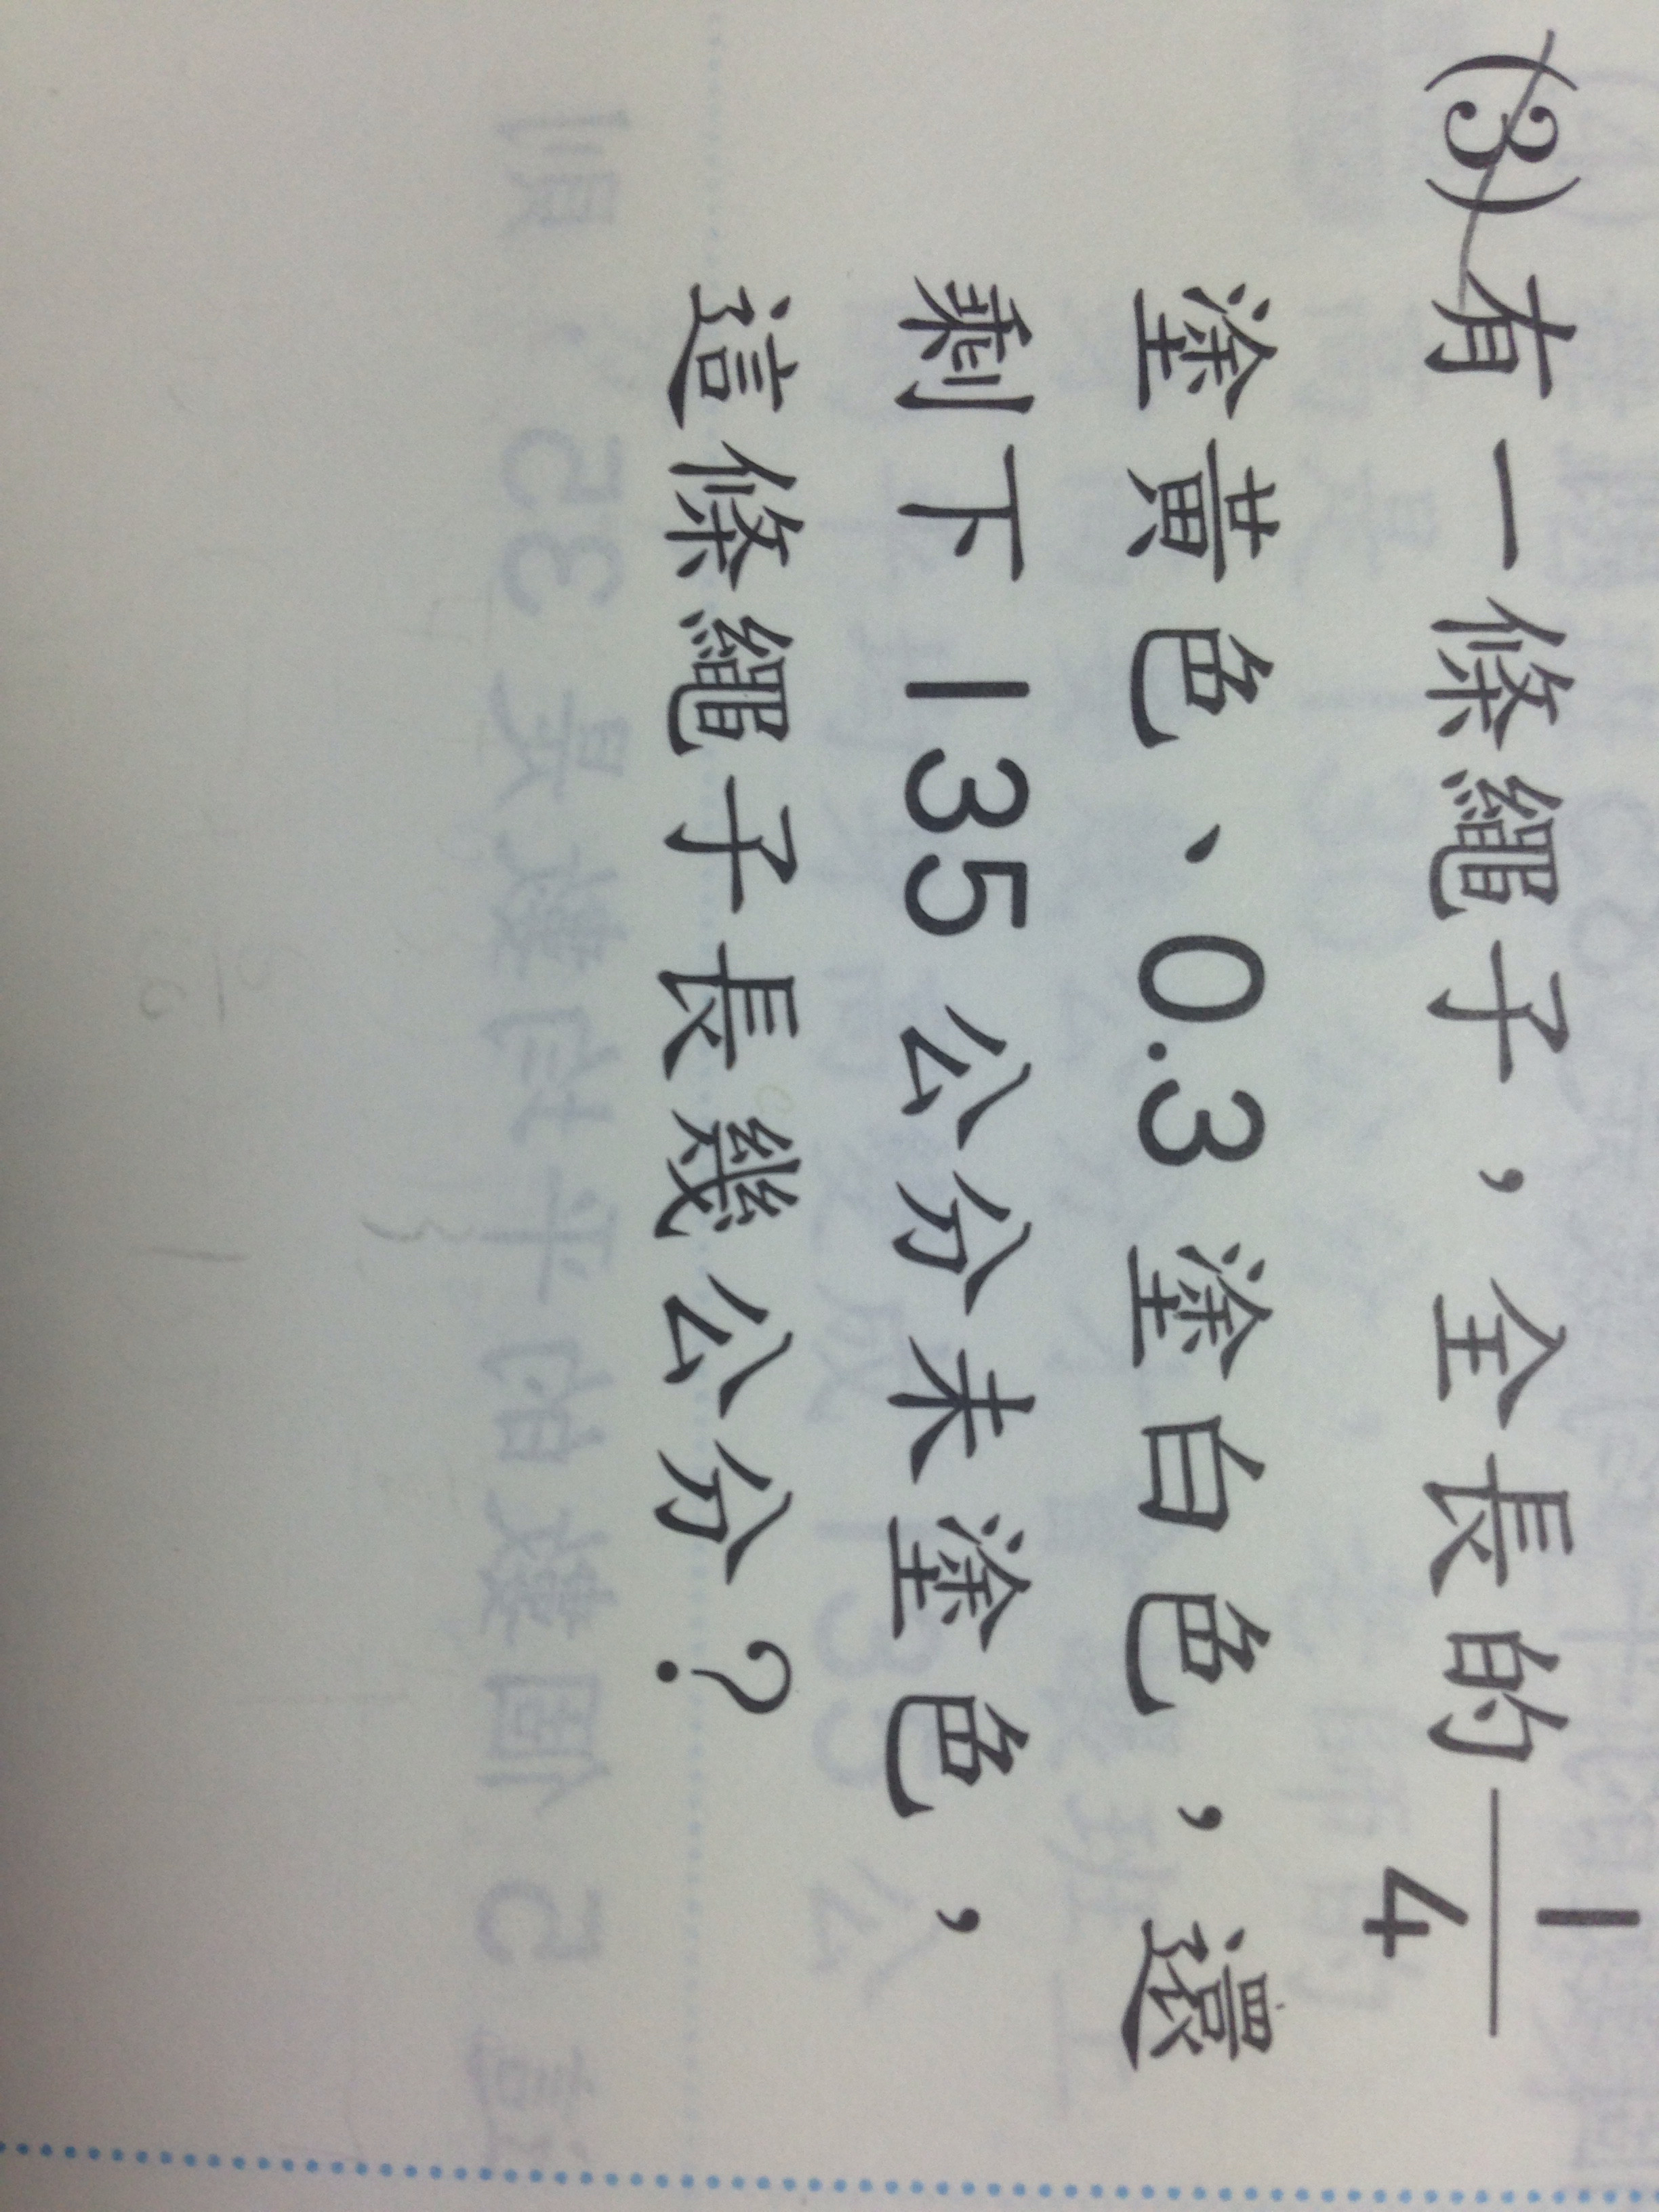 (3)有一條繩子，全長的1/4
塗黃色、0.3塗白色，還
剩下135公分未塗色，
這條繩子長幾公分？